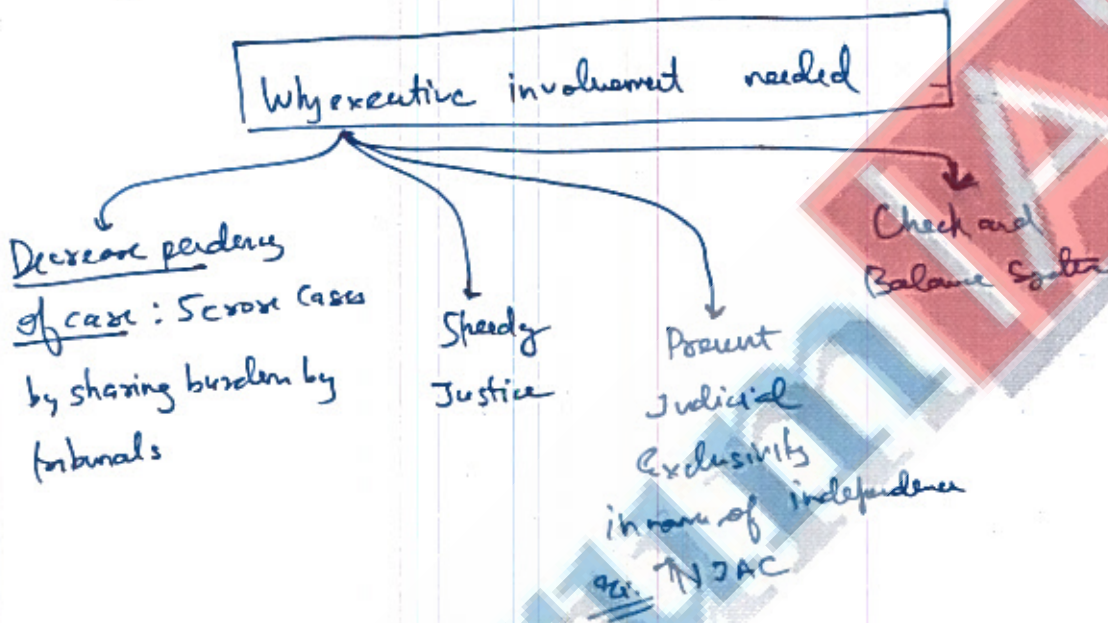 Why executive involvement needed
Decrease pendency
of case : 5 crore cases
by sharing burden by
tribunals
Speedy
Justice
Prevent
Judicial
Exclusivity
in name of independence
eg: NJAC
Check and
Balance System
um IA